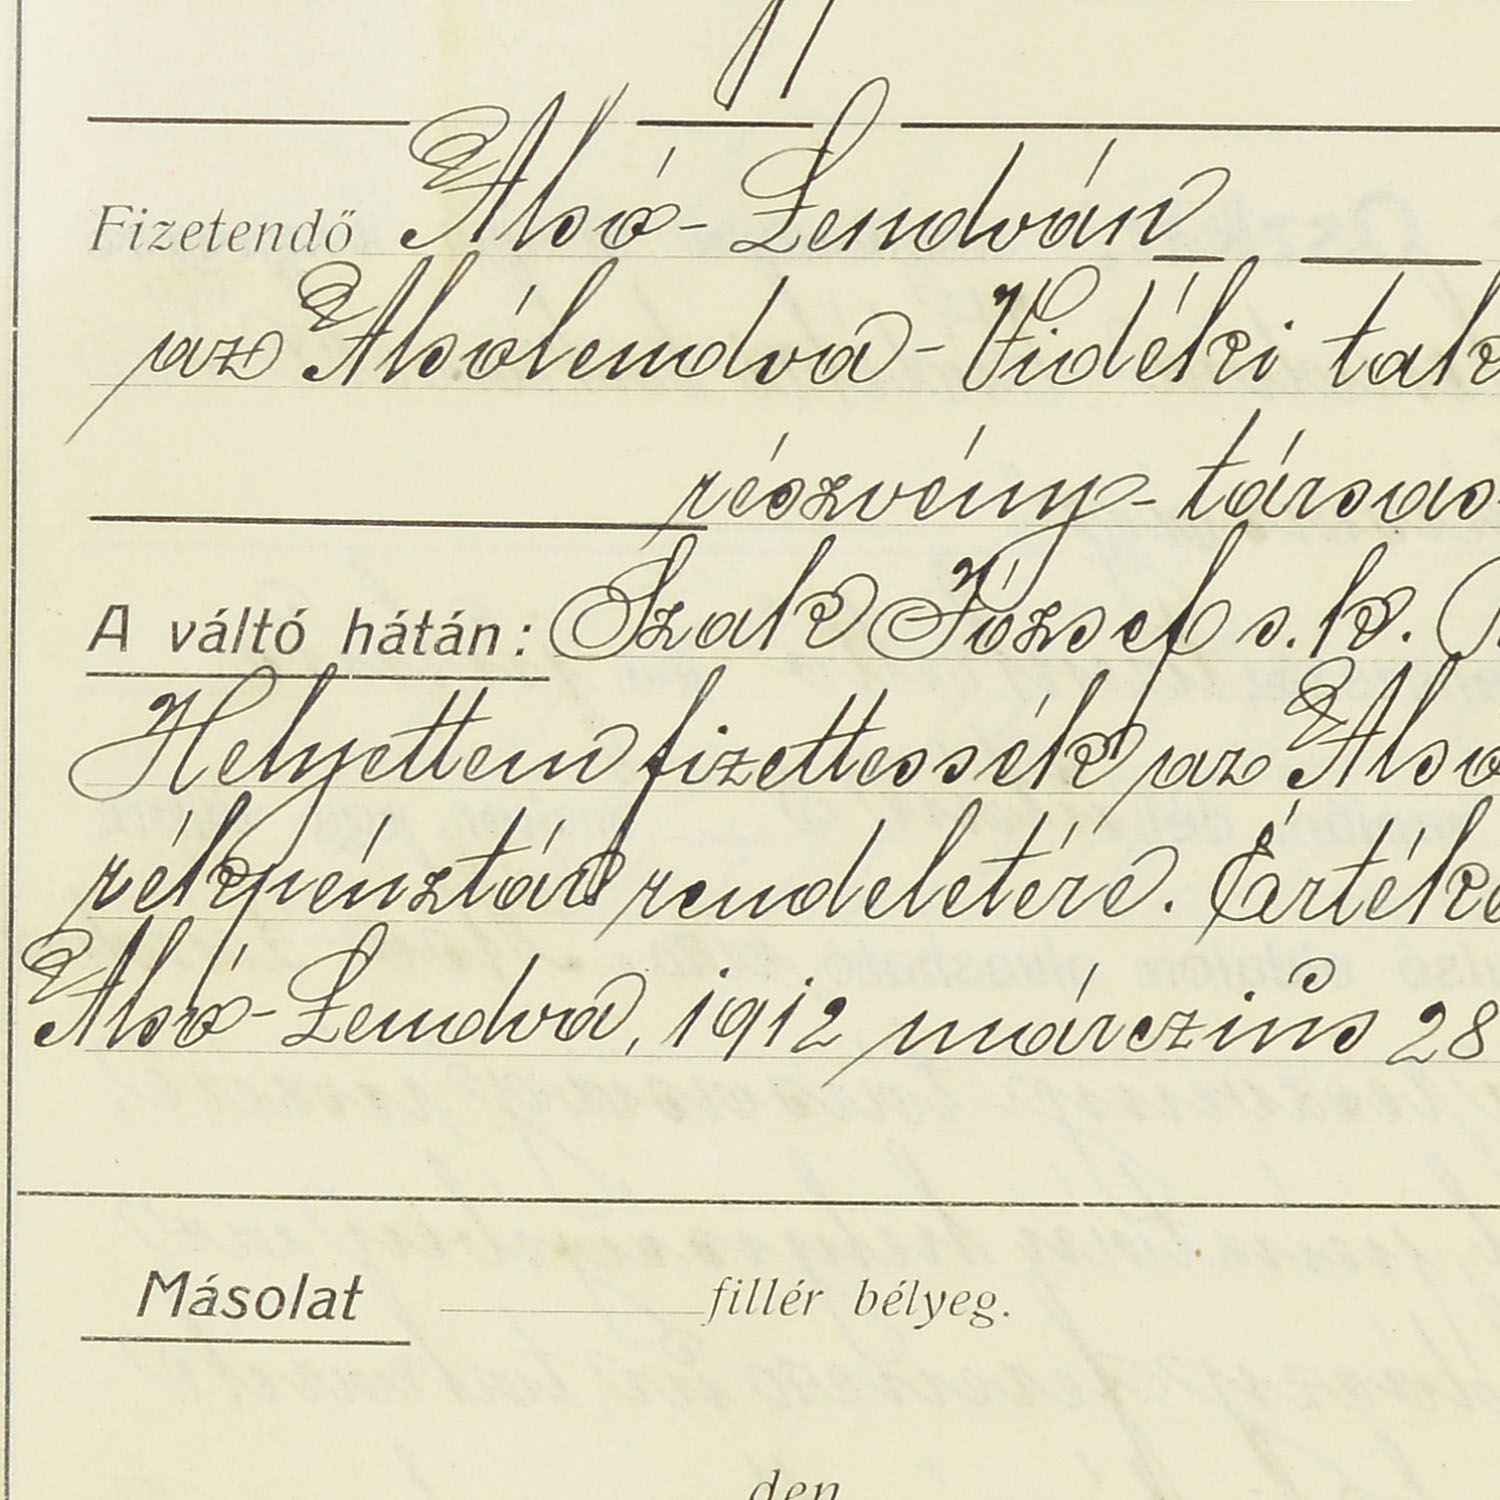 Fizetendő Alsó-Lendván
az Alsólendva-Vidéki tak
részvény-társas
A váltó hátán: Szak József s. k.
Helyettem fizettessék az Also
rékpénztár rendeletére. Értéke
Alsó-Lendva, 1912 márczius 28
Másolat fillér bélyeg.
den